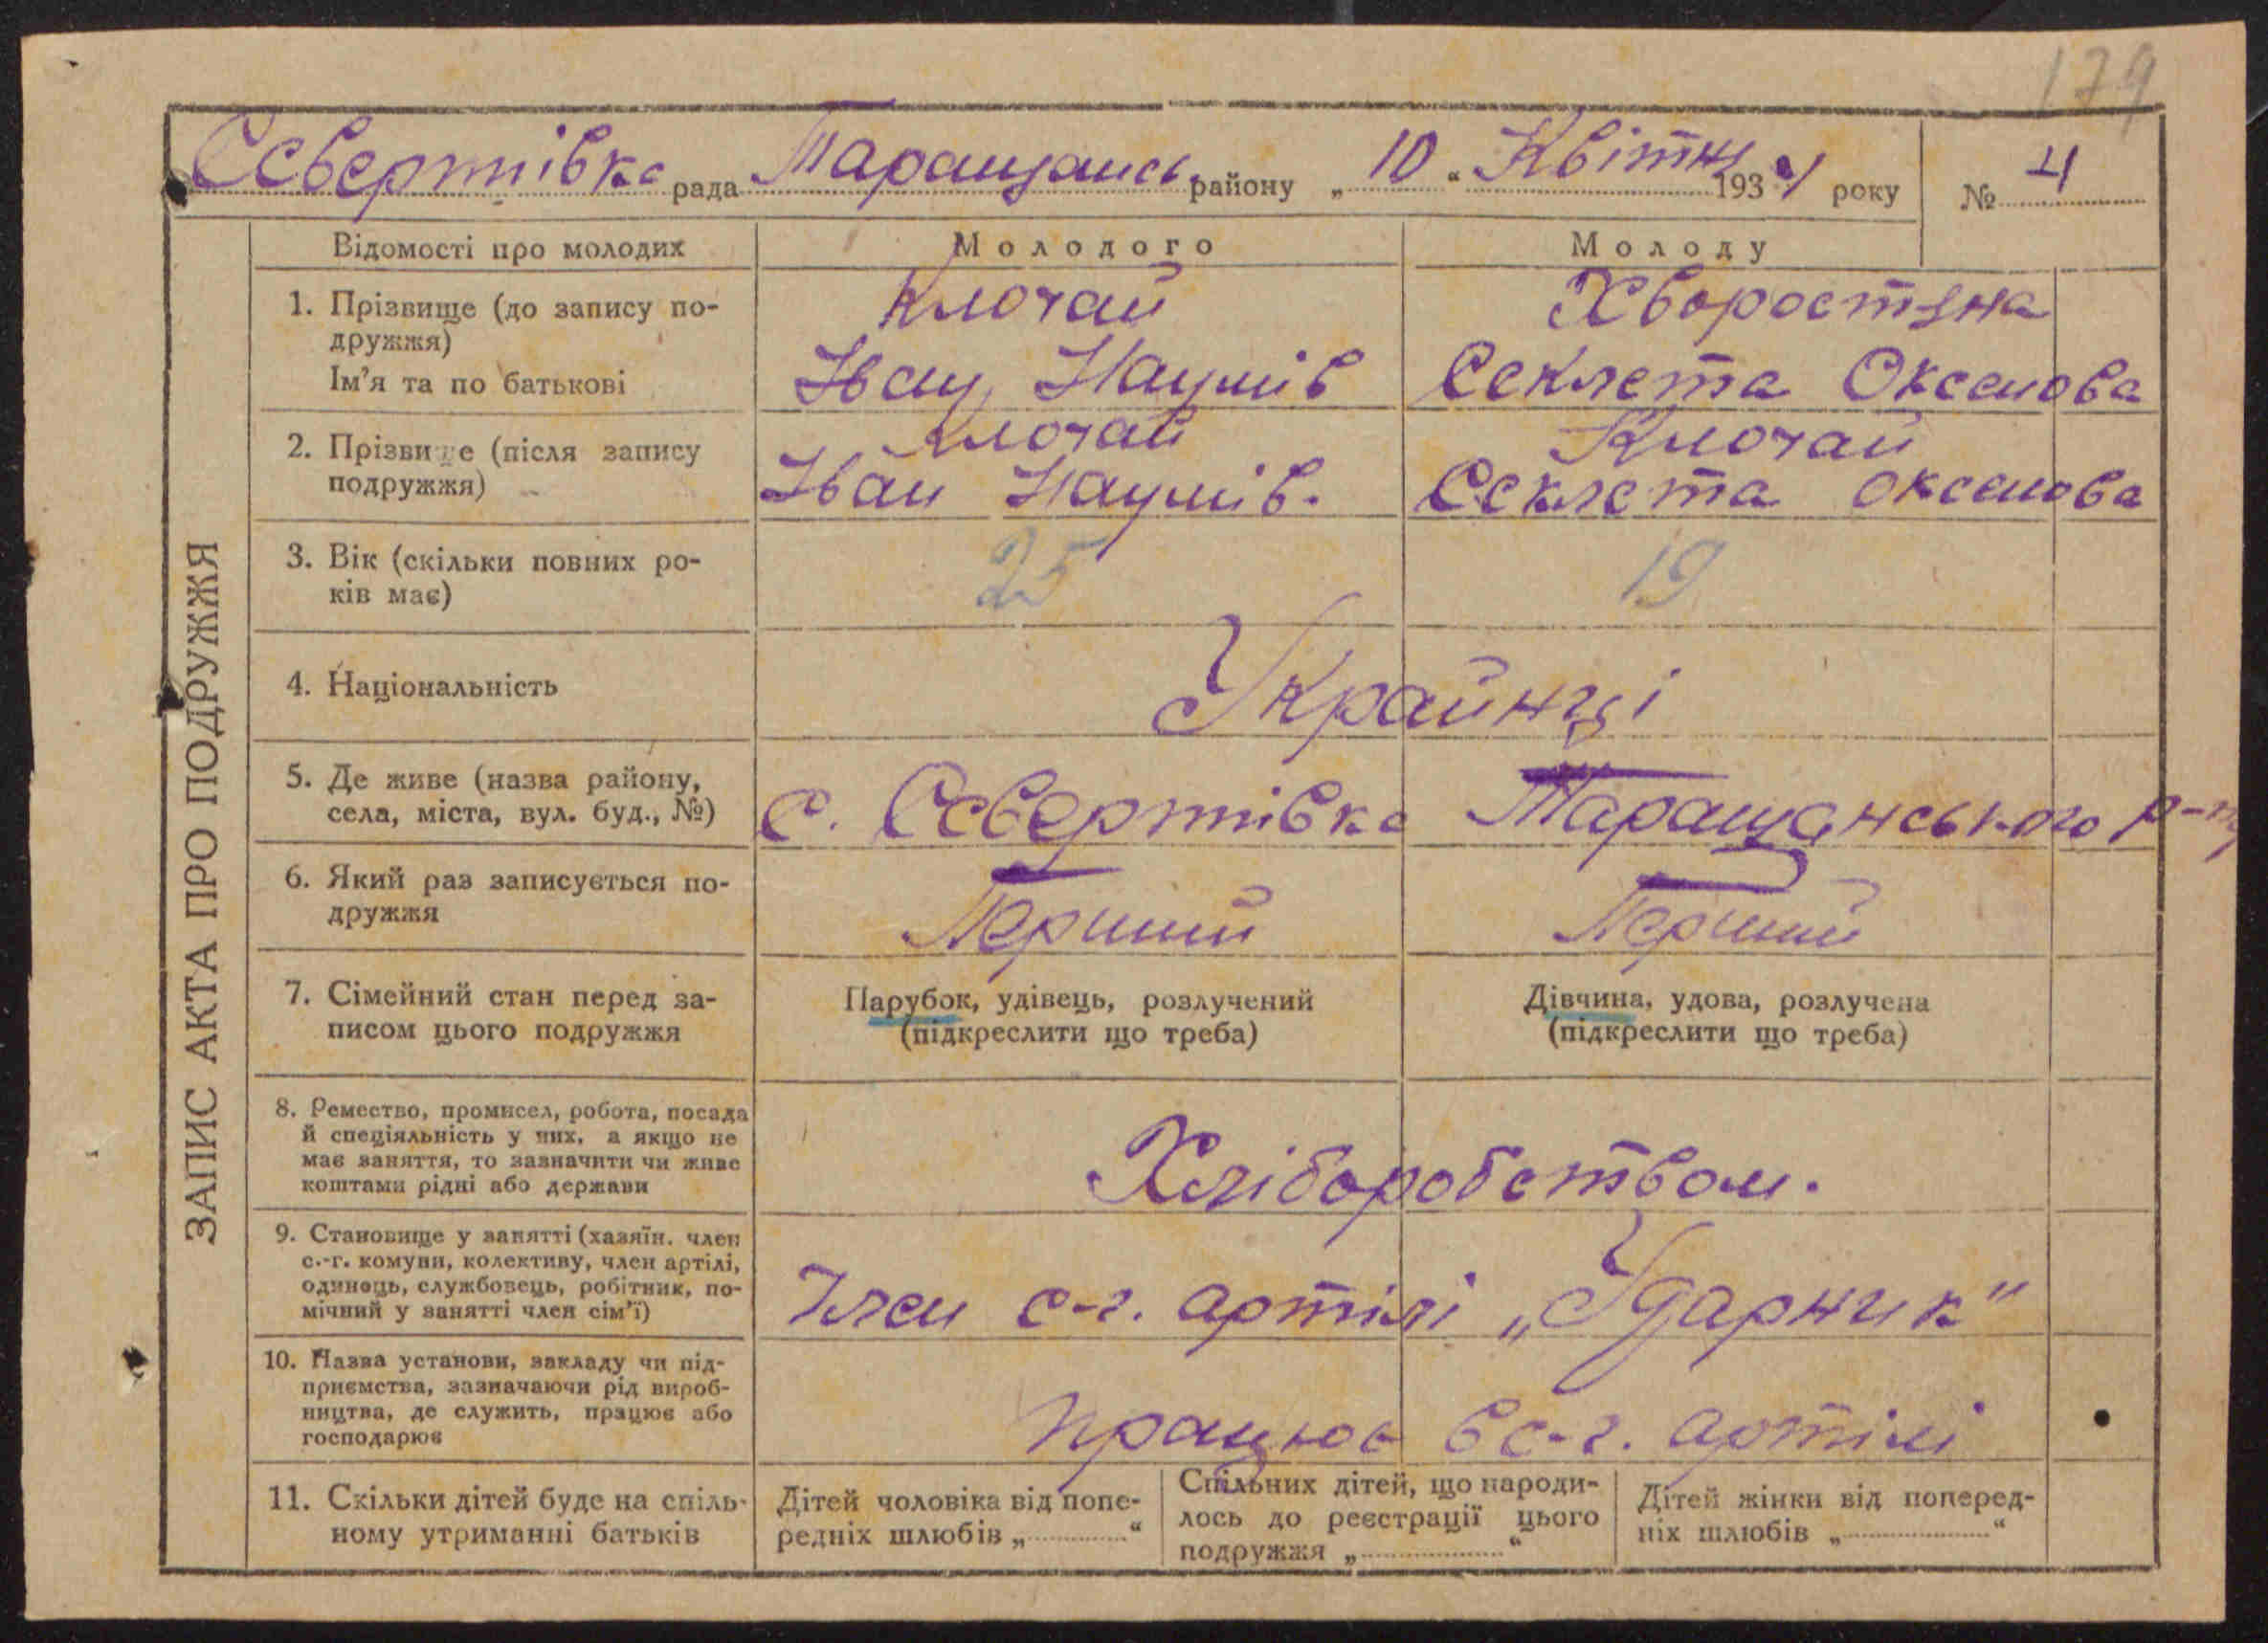 179
Сєвертівка рада Таращанськ району „ 10 “ Квітня 1934 року № 4
ЗАПИС АКТА ПРО ПОДРУЖЖЯ
Відомості про молодих Молодого Молоду
1. Прізвище (до запису по-
дружжя)
Ключай Хворостяна
Ім'я та по батькові Іван Наумів Секлета Оксенова
2. Прізвище (після запису
подружжя)
Ключай Ключай
Іван Наумів. Секлета Оксенова
3. Вік (скільки повних ро-
ків має)
25 19
4. Національність Українці
5. Де живе (назва району,
села, міста, вул. буд., №)
с. Сєвертівка Таращанського р-ну
6. Який раз записується по-
дружжя
Перший Перший
7. Сімейний стан перед за-
писом цього подружжя
Парубок, удівець, розлучений
(підкреслити що треба)
Дівчина, удова, розлучена
(підкреслити що треба)
8. Ремество, промисел, робота, посада
й спеціяльність у них, а якщо не
має заняття, то зазначити чи живе
коштами рідні або держави
Хліборобством.
9. Становище у занятті (хазяїн, член
с.-г. комуни, колективу, член артілі,
одинець, службовець, робітник, по-
мічний у занятті член сім'ї)
Член с-г. артілі „Ударник"
10. Назва установи, закладу чи під-
приємства, зазначаючи рід вироб-
ництва, де служить, працює або
господарює
працює в с-г. артілі
11. Скільки дітей буде на спіль-
ному утриманні батьків
Дітей чоловіка від попе-
редніх шлюбів „ “
Спільних дітей, що народи-
лось до реєстрації цього
подружжя „ “
Дітей жінки від поперед-
ніх шлюбів „ “